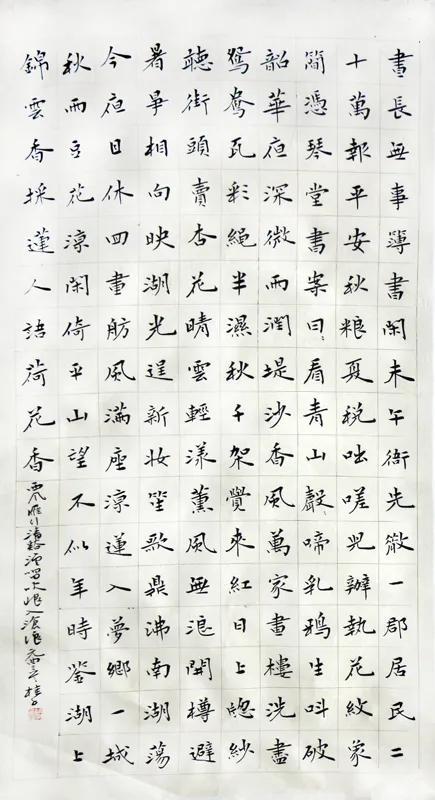 晝長無事簿書閑未午衙先散一郡居民二
十萬報平安秋粮夏税咄嗟兒辦執花紋象
簡憑琴堂書案日〻看青山聲〻啼乳鴉生叫破
韶華夜深微雨潤堤沙香風萬家畫樓洗盡
鴛鴦瓦彩繩半濕秋千架覺來紅日上窗紗
聽街頭賣杏花晴雲輕漾薰風無浪開樽避
暑爭相向映湖光逞新妝笙歌鼎沸南湖蕩
今夜且休回畫舫風滿座涼蓮入夢鄉一城
秋雨豆花涼閑倚平山望不似年時鑒湖上
錦雲香採蓮人語荷花香西風雁行清谿漁唱吹恨入滄浪元曲